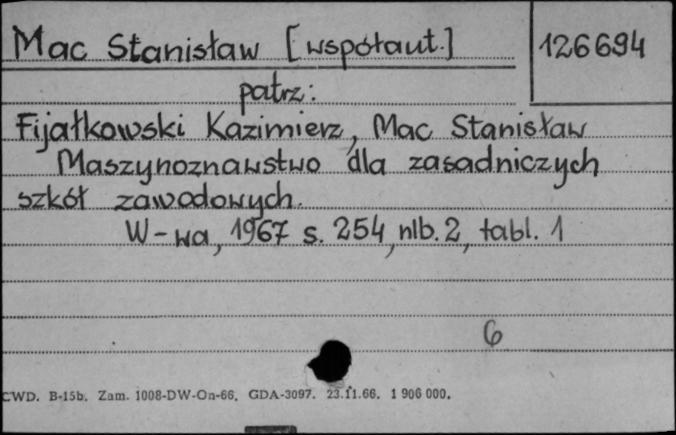 Mac Stanisław [współaut.]
126694
patrz:
Fijałkowski Kazimierz, Mac Stanisław
Maszynoznawstwo dla zasadniczych
szkół zawodowych.
W-wa, 1967 s. 254, nlb. 2, tabl. 1
6
CWD. B-15b. Zam. 1008-DW-On-66. GDA-3097. 23.11.66. 1 906 000.